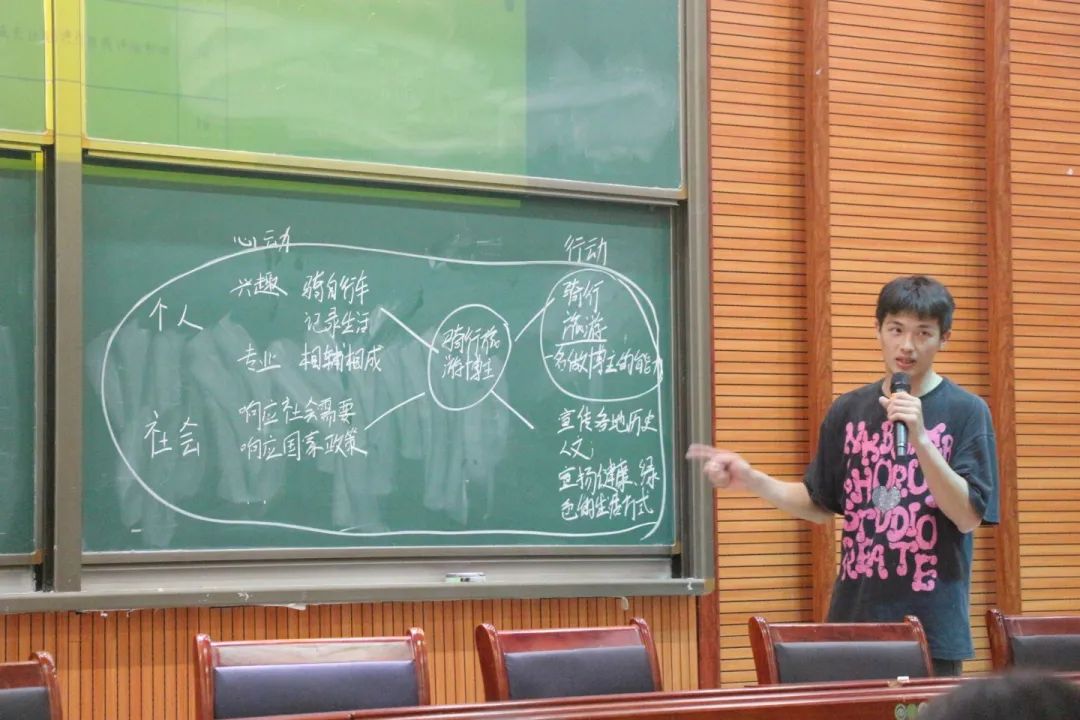 心动
行动
个人
兴趣 骑自行车
记录生活
专业 相辅相成
社会
响应社会需要
响应国家政策
骑行旅
游博主
骑行
旅游
做博主的能力
宣传各地历史
人文
宣扬健康、绿
色的生活方式
STUDIO